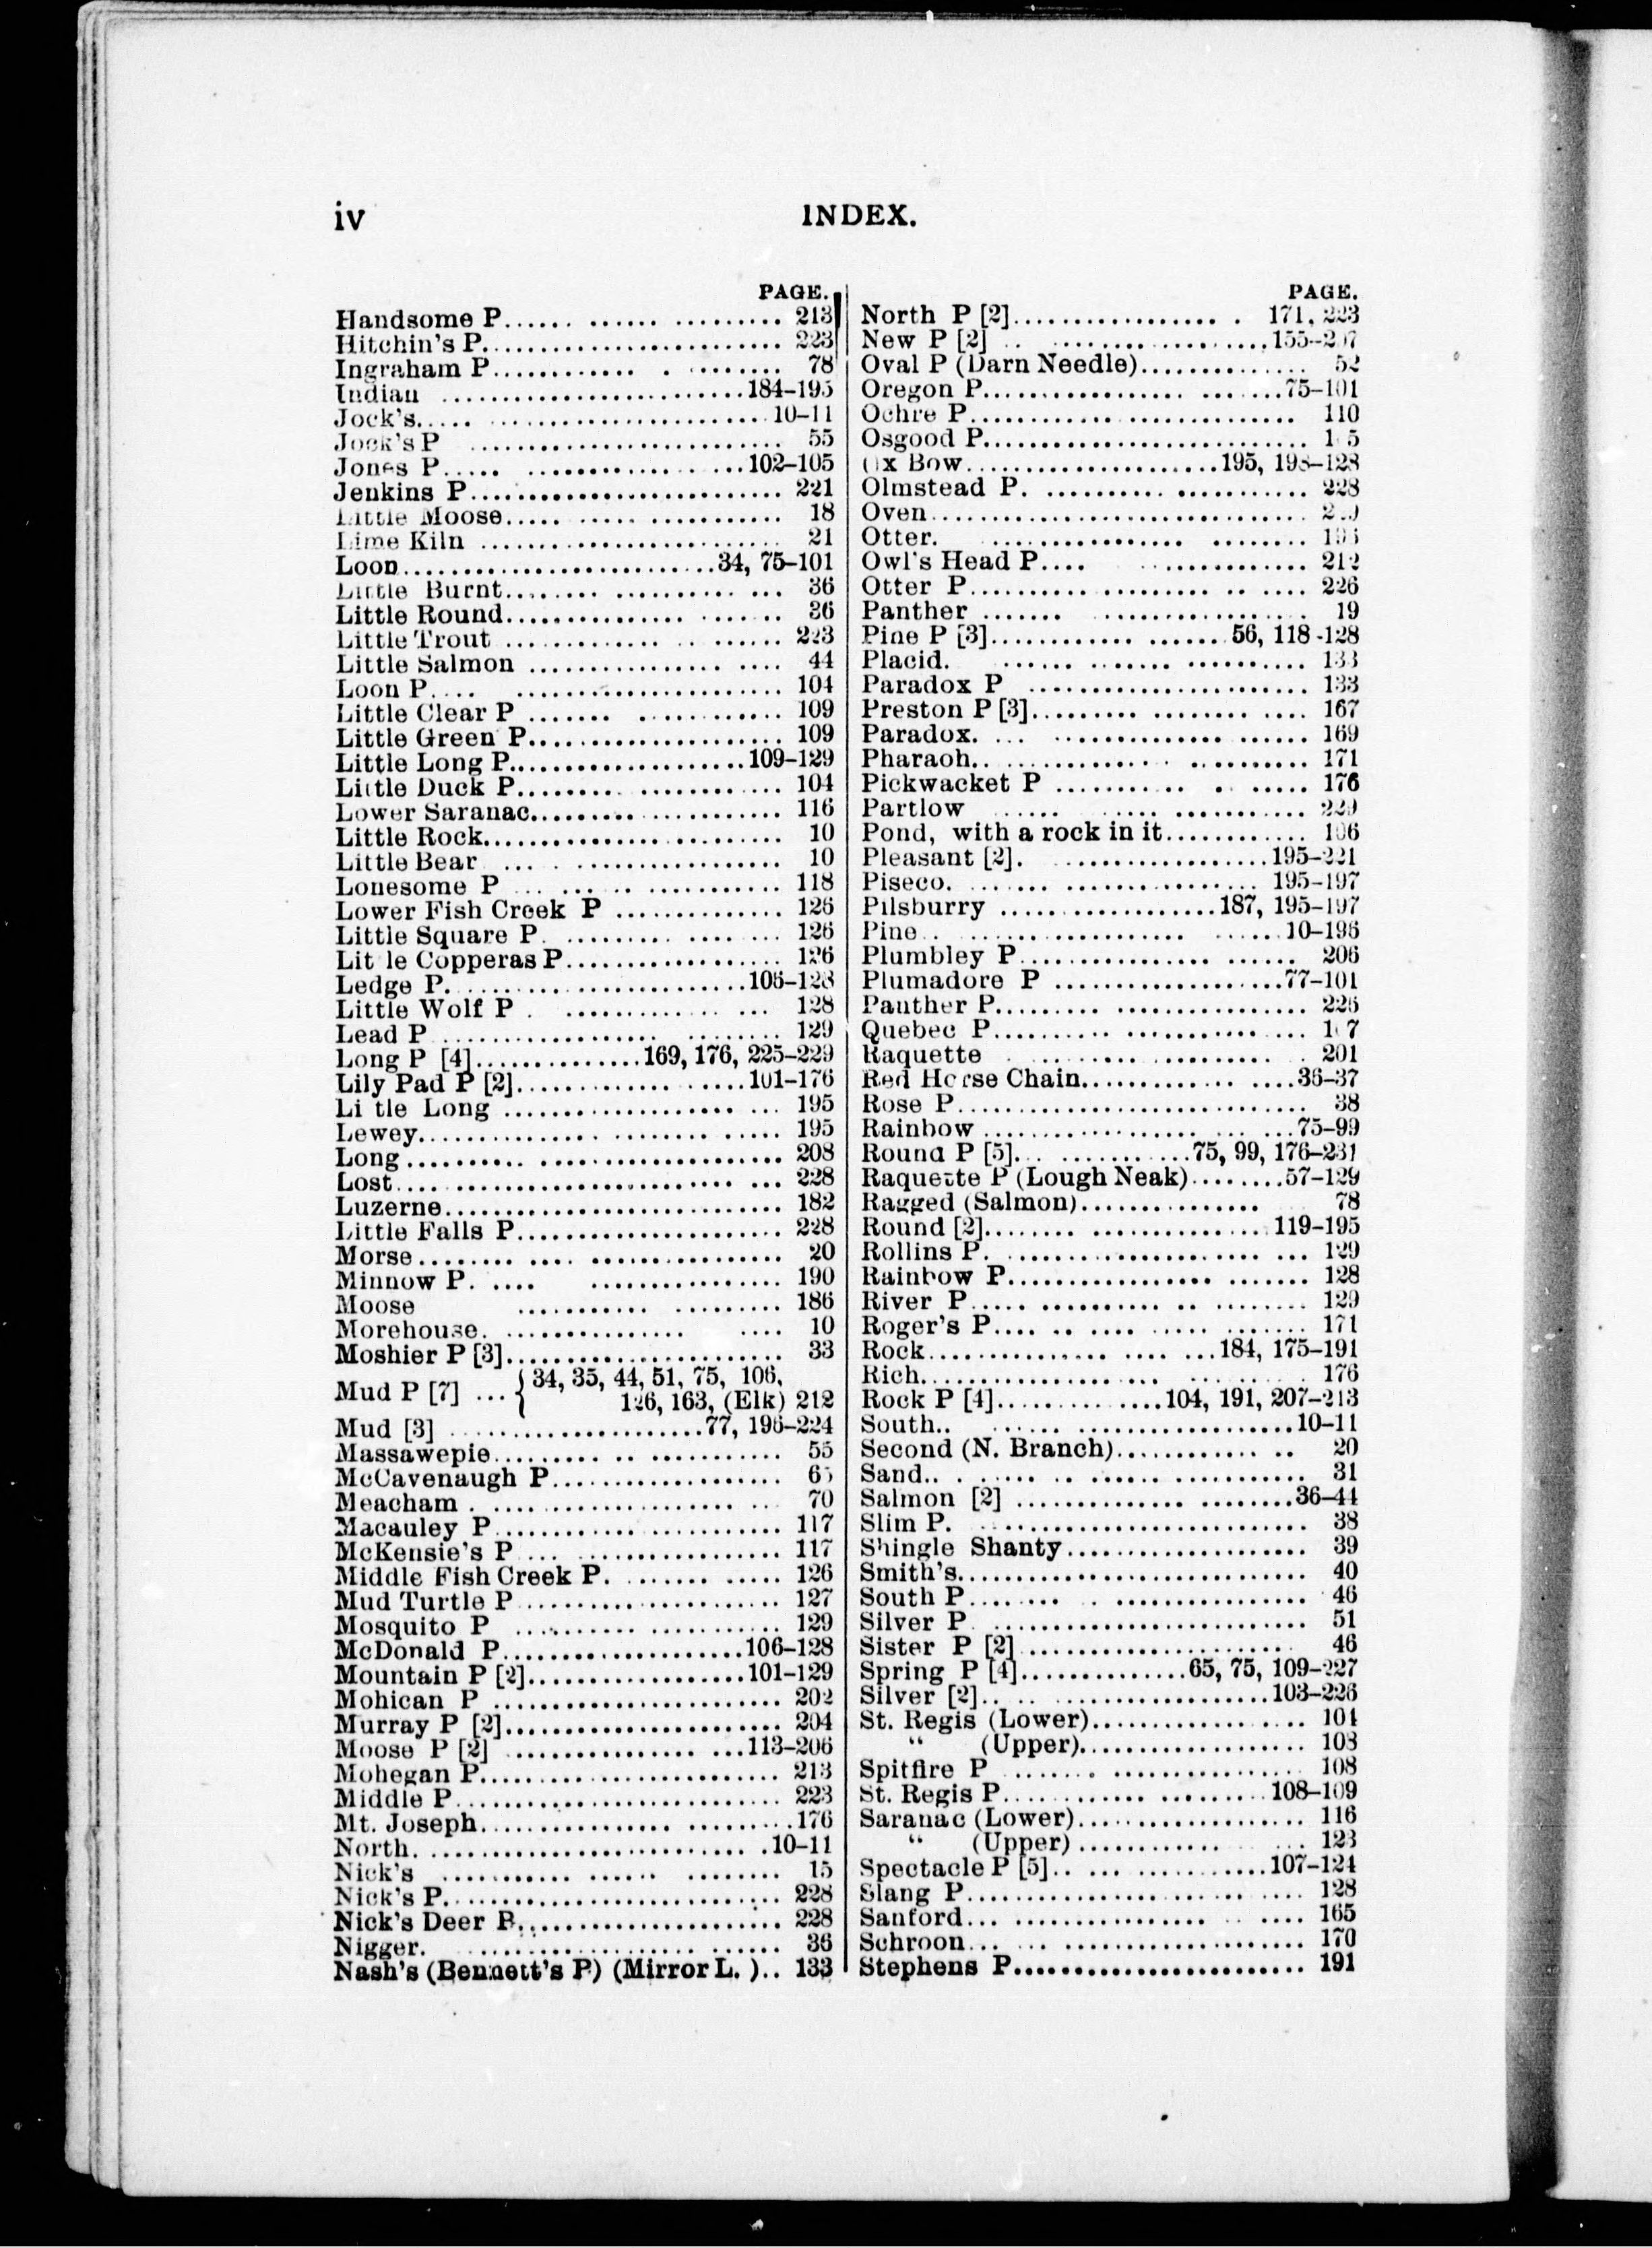 iv
INDEX.
PAGE.
Handsome P...... ...... ......... 213
Hitchin's P............................ 223
Ingraham P............ . ........ 78
Indian ........................184-195
Jock's..... .........................10-11
Jock's P ............................ 55
Jones P..... ....................102-105
Jenkins P............................ 221
Little Moose..... ..... ........... 18
Lime Kiln ........................ 21
Loon..........................34, 75-101
Little Burnt........ .......... ... 36
Little Round................ ....... 36
Little Trout ................ ....... 223
Little Salmon ................ .... 44
Loon P.... ......................... 104
Little Clear P ........ ............ 109
Little Green P........................ 109
Little Long P......................109-129
Little Duck P......... .............. 104
Lower Saranac........................ 116
Little Rock........................... 10
Little Bear ... .................... 10
Lonesome P ... ... .. ............ 118
Lower Fish Creek P .............. 126
Little Square P. .......... ... .... 126
Lit le Copperas P.................. 126
Ledge P. .........................105-128
Little Wolf P . .............. ... 128
Lead P ..................... ........ 129
Long P [4]..............169, 176, 225-229
Lily Pad P [2]............... .....101-176
Li tle Long ..................... ... 195
Lewey............... ........ ..... 195
Long.......... ...................... 208
Lost.... ....................... ... 228
Luzerne............................. 182
Little Falls P........................ 228
Morse........ .... ................ 20
Minnow P. .... ................ 190
Moose ............ ......... 186
Morehouse. ................ .... 10
Moshier P [3]........................ 33
Mud P [7] ... { 34, 35, 44, 51, 75, 106,
126, 163, (Elk) 212
Mud [3] .......................77, 196-224
Massawepie.......... .. ........... 55
McCavenaugh P.................... 65
Meacham . ..................... ... 70
Macauley P......................... 117
McKensie's P .... ................ 117
Middle Fish Creek P. ....... ..... 126
Mud Turtle P....................... 127
Mosquito P ..... ............. 129
McDonald P......................106-128
Mountain P [2]....................101-129
Mohican P .......................... 202
Murray P [2]........................ 204
Moose P [2] ................. ...113-206
Mohegan P........................... 213
Middle P............................. 223
Mt. Joseph................ .........176
North. .............................10-11
Nick's ........... ...... ........ 15
Nick's P............................ 228
Nick's Deer P....................... 228
Nigger. .................... ...... 36
Nash's (Bennett's P.) (Mirror L. ).. 133
PAGE.
North P [2].................. . 171, 223
New P [2] .. ....................155-207
Oval P (Darn Needle)............... 52
Oregon P.................. .......75-101
Ochre P............................. 110
Osgood P...........................
Ox Bow.......................195, 198-128
Olmstead P. .......... ............ 228
Oven...............................
Otter. ................ .........
Owl's Head P.... ............. 212
Otter P...................... .. .... 226
Panther ....... ................... 19
Pine P [3]............ .......56, 118-128
Placid. ...... ....... ........... 133
Paradox P ....................... 133
Preston P [3]......... ........ .... 167
Paradox. ... .............. ...... 169
Pharaoh.. ............. . .......... 171
Pickwacket P ........... . ...... 176
Partlow ...... .... ............ 229
Pond, with a rock in it............ 106
Pleasant [2]. ....................195-221
Piseco. ....... .................. 195-197
Pilsburry .....................187, 195-197
Pine.. ..................... ......10-196
Plumbley P.................. ...... 206
Plumadore P .....................77-101
Panther P.......... ................ 226
Quebec P.......... ............ ....
Raquette . ..................... . 201
Red Horse Chain.............. ....36-37
Rose P.............................. 38
Rainbow ................... ... ...75-99
Round P [5].. ............75, 99, 176-231
Raquette P (Lough Neak)........57-129
Ragged (Salmon)................ 78
Round [2]........ ................119-195
Rollins P. ...................... ... 129
Rainbow P.................. ....... 128
River P..... ........... .. ........ 129
Roger's P.... .. .... ..... ....... 171
Rock................ .... ...184, 175-191
Rich................ ... ......... 176
Rock P [4]...............104, 191, 207-213
South.. ...... .....................10-11
Second (N. Branch)............ .. 20
Sand.. . ..... .. ...... ............ 31
Salmon [2] ............... ........36-44
Slim P. ........................... 38
Shingle Shanty...................... 39
Smith's.............................. 40
South P........ . ................. 46
Silver P ............................ 51
Sister P [2]........................ 46
Spring P [4]...............65, 75, 109-227
Silver [2].. .. ....................103-226
St. Regis (Lower)................... 104
“ (Upper)..................... 108
Spitfire P ....... . ............... 108
St. Regis P............. ..........108-109
Saranac (Lower).................... 116
“ (Upper) ............ ... 123
Spectacle P [5].. ... .............107-124
Slang P..................... .. .... 128
Sanford... .................. .. .... 165
Schroon... ... ...................... 170
Stephens P........................ 191